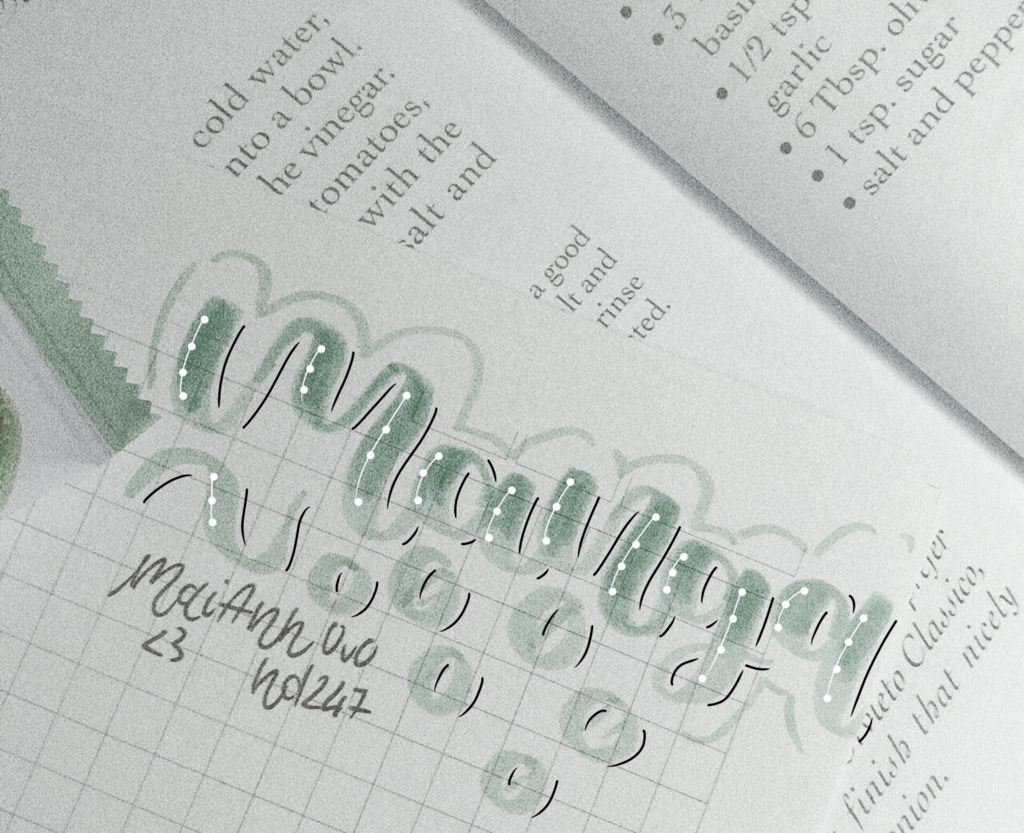 cold water,
nto a bowl.
he vinegar.
tomatoes,
with the
salt and
a good
lt and
rinse
ted.
• 3
basi
• 1/2 tsp
garlic
• 6 Tbsp. oliv
• 1 tsp. sugar
• salt and peppe
MaiAnh 0v0
<3 hd247
yer
reto Classico,
finish that nicely
nion.